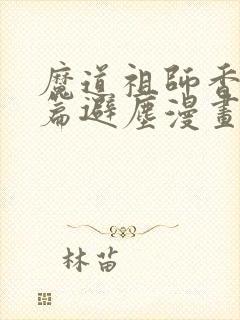 魔道祖師香
篇避塵漫畫
林苗